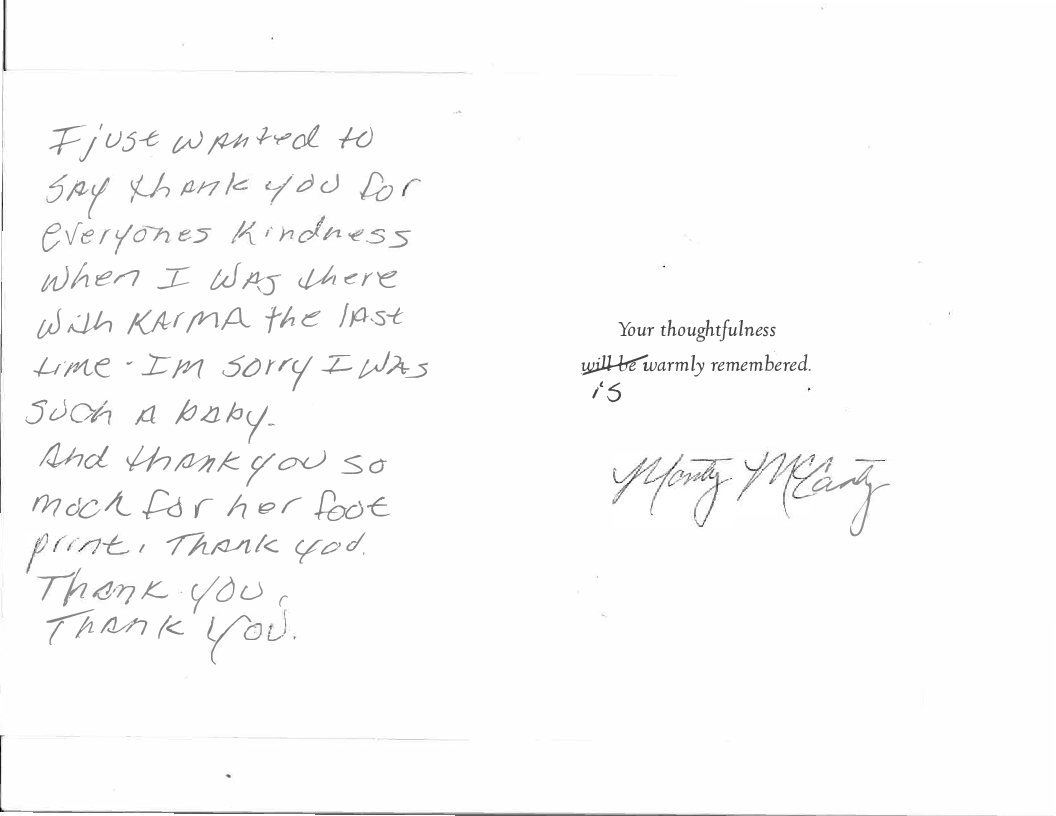 I just wanted to
say thank you for
everyones kindness
when I was there
with KArMA the last
time - Im sorry I was
such a baby.
And thank you so
much for her foot
print, Thank you.
Thank you,
Thank you.
Your thoughtfulness
will be warmly remembered.
is
Monty McCanty